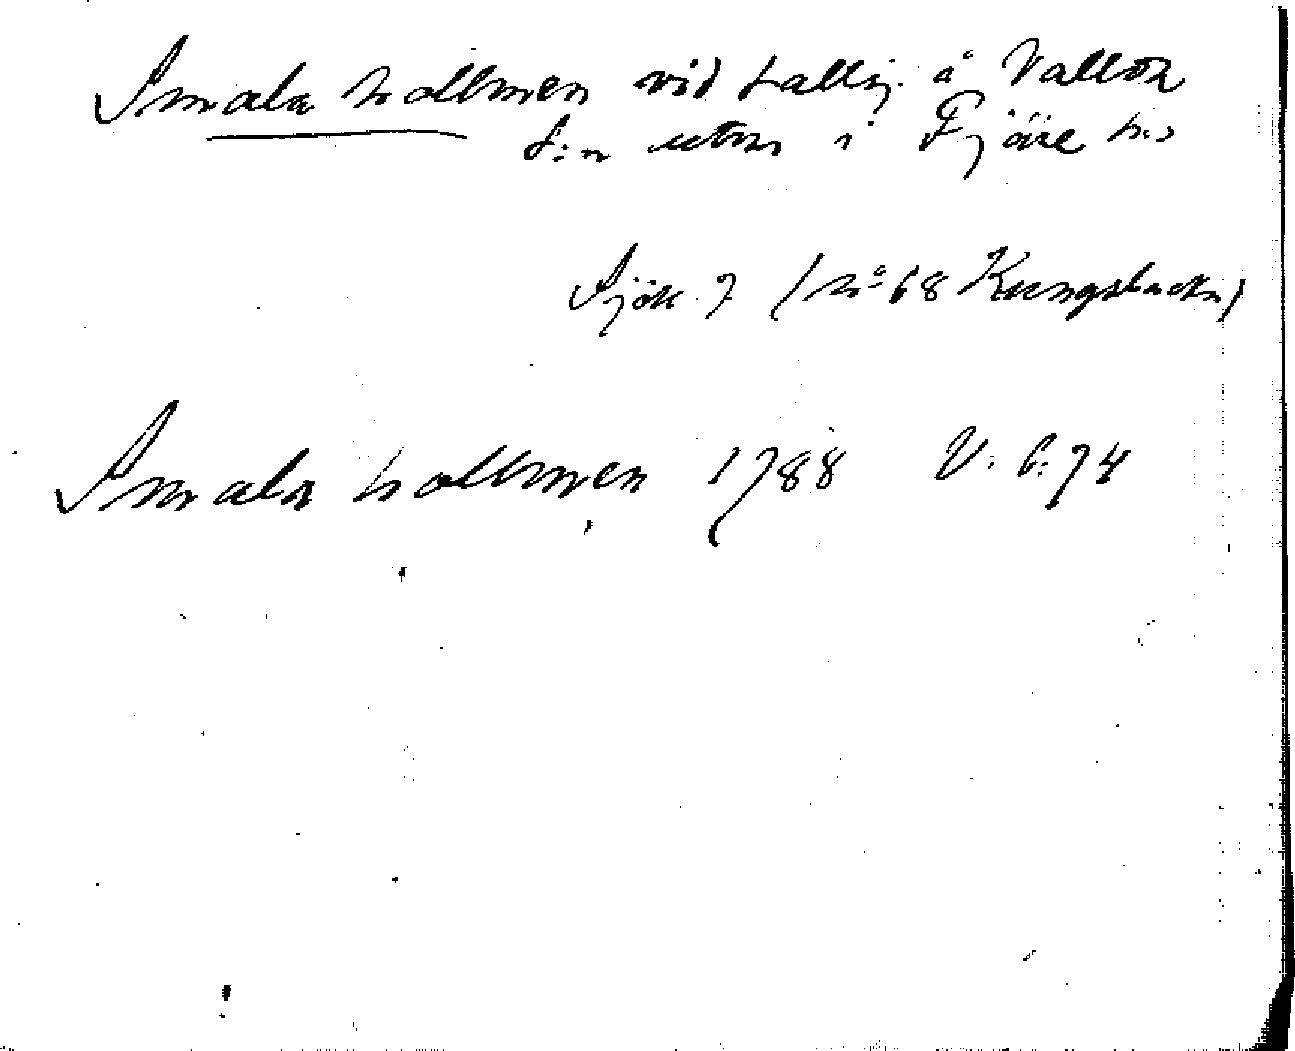 Smala hollmen vid Lallig. å Vallda
S:n utom i Fjäre h:s
Sjök. 7 (nº 68 Kungsbacka)
Smala hollmen 1788 V: 6: 74